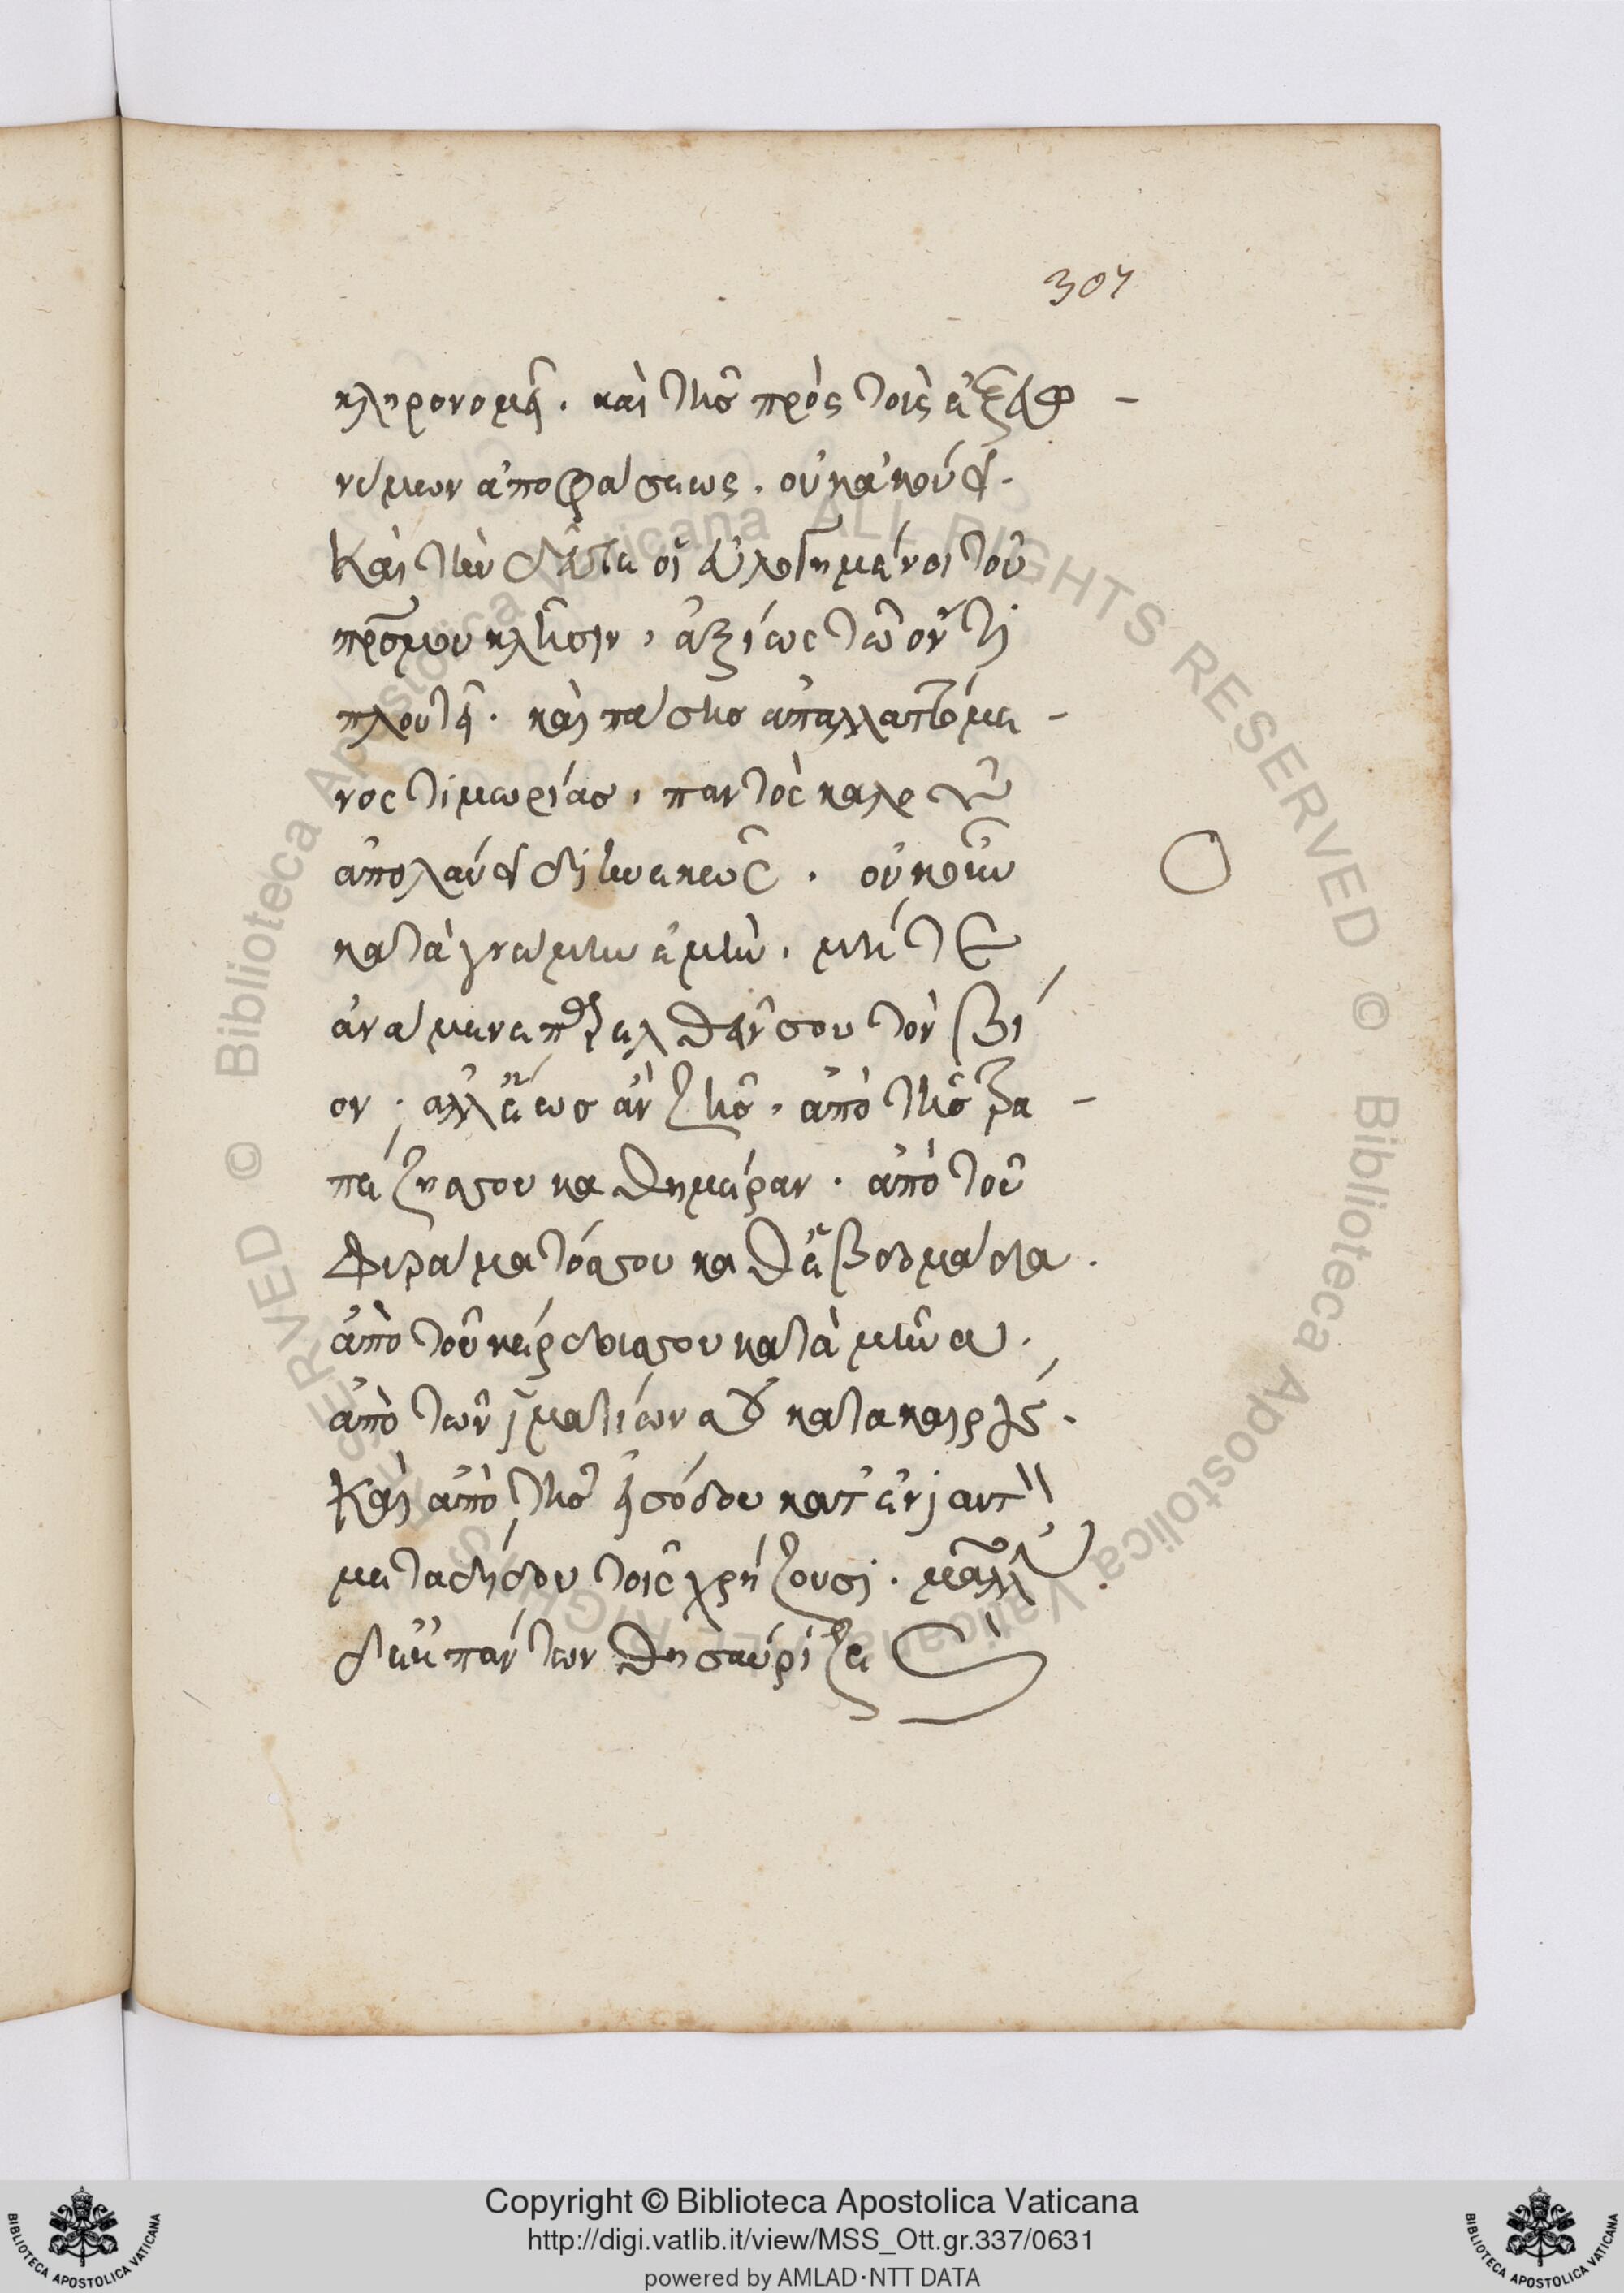 307
κληρονομεῖ. καὶ τῆς πρὸς τοὺς ἐξ εὐω-
νύμων ἀποφάσεως. οὐκ ἀκούει.
Καὶ τὴν δεῦτε οἱ εὐλογημένοι τοῦ
πρσμου κλῆσιν, ἀξίως τῶ ὄντι
πλουτεῖ. καὶ πάσης ἀπαλλαττόμε-
νος τιμωρίας, παντὸς καλοῦ
ἀπολαύει διηνεκῶς. οὐκοῦν
κατὰ γνώμην ἐμὴν. μήτε
ἀνάμενε παρελθεῖν σου τὸν βί
ον. ἀλλ' ἕως ἂν ζῆς, ἀπὸ τῆς τρα-
πέζης σου καθημέραν. ἀπὸ τοῦ
φυράματός σου καθ' ἑβδομάδα.
ἀπὸ τοῦ κέρδους σου κατὰ μῆνα.
ἀπὸ τῶν ἱματίων σου κατακαιρούς.
Καὶ ἀπὸ τῆς εἰσόδου κατ' ἐνιαυτὸν
μεταδίδου τοῖς χρήζουσι. μᾶλλον
δὲ ἐκ πάντων θησαύριζε
Copyright © Biblioteca Apostolica Vaticana
http://digi.vatlib.it/view/MSS_Ott.gr.337/0631
powered by AMLAD·NTT DATA
BIBLIOTECA APOSTOLICA VATICANA
BIBLIOTECA APOSTOLICA VATICANA
© Biblioteca Apostolica Vaticana ALL RIGHTS RESERVED
© Biblioteca Apostolica Vaticana ALL RIGHTS RESERVED